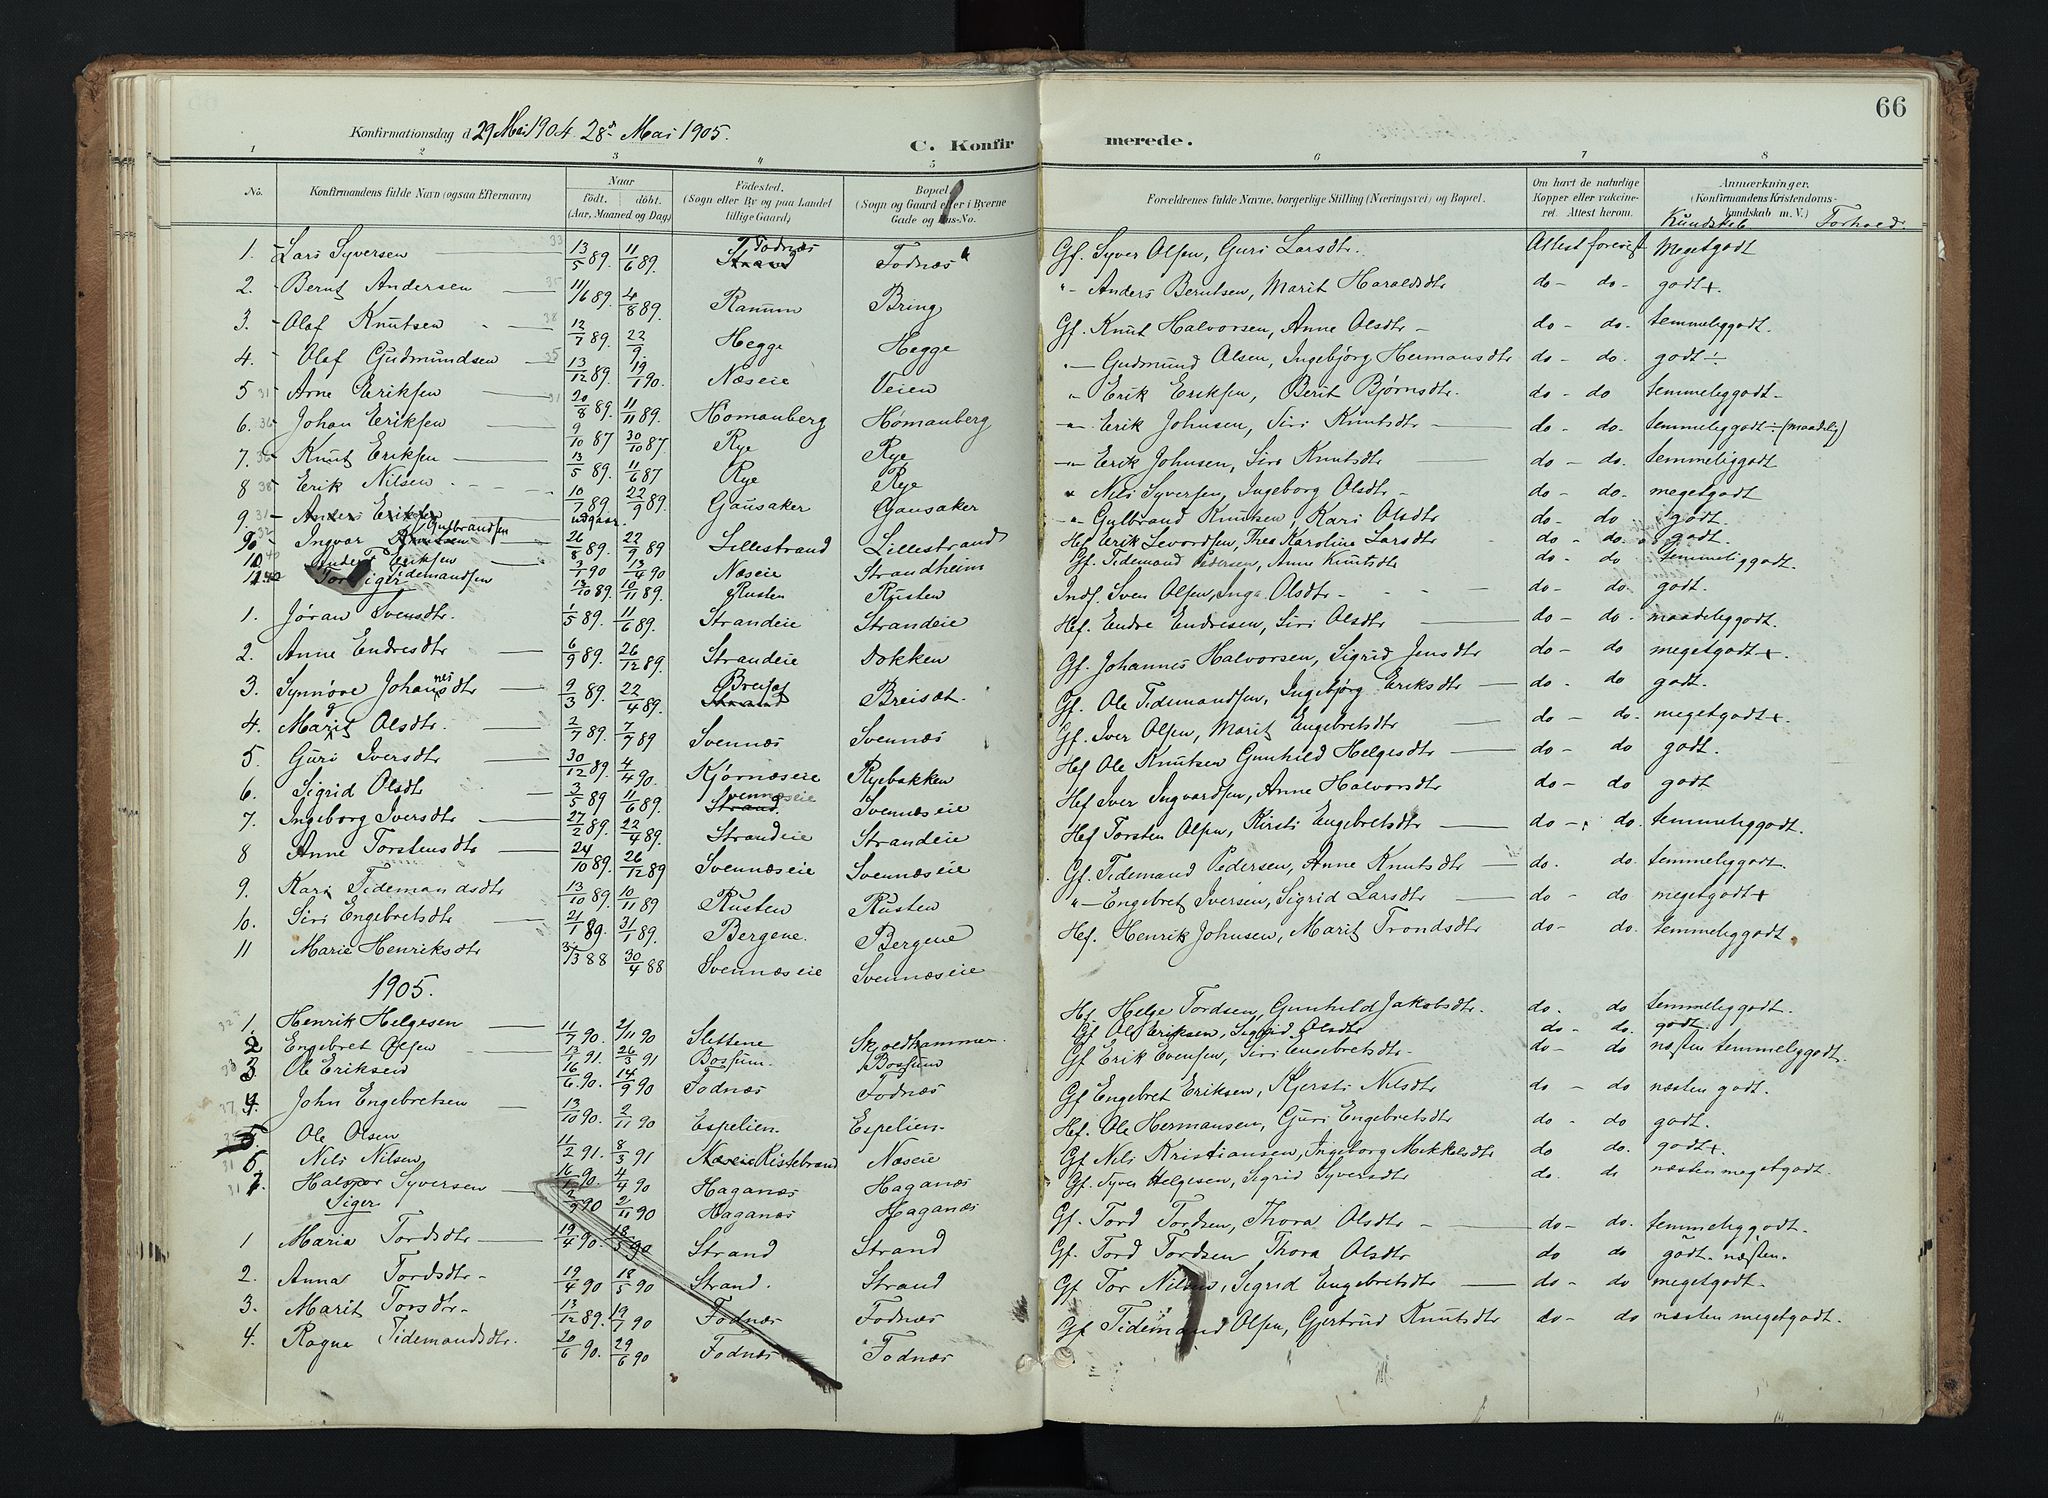 66
Konfirmationsdag d. 29 Mai 1904. 28de Mai 1905.
C. Konfirmerede.
1 2 3 4 5 6 7 8
No. Konfirmandens fulde Navn (ogsaa Efternavn) Naar Födt. döbt. (Aar, Maaned og Dag) Födested. (Sogn eller By og paa Landet tillige Gaard) Bopæl. (Sogn og Gaard eller i Byerne Gade og Hus-No. Forældrenes fulde Navne, borgerlige Stilling (Næringsvei) og Bopæl. Om havt de naturlige Kopper eller vakcineret. Attest herom. Anmærkninger. (Konfirmandens Kristendomskundskab m. V.)
Kundskab Forhold
1. Lars Syversen 13/5 89. 11/6 89. Strand Fodnæs Fodnæs Gf. Syver Olsen, Guri Larsdtr. Attest forevist Megetgodt
2. Bernt Andersen 11/6 89. 4/8 89. Ranum Bring " Anders Berntsen, Marit Haraldsdtr do - do - godt+.
3. Olaf Knutsen 12/7 89. 22/9 Hegge Hegge Gf. Knut Halvorsen, Anne Olsdtr do - do. temmeliggodt.
4. Olaf Gudmundsen 13/12 89. 19/1 90. Næseie Veien " Gudmund Olsen, Ingebjørg Hermansdtr do - do. godt÷
5 Arne Eriksen 20/8 89. 11/11 89. Hømanberg Hømanberg " Erik Eriksen, Berit Bjørnsdtr. do - do temmeliggodt
6. Johan Eriksen 9/10 87 30/10 87 Rye Rye " Erik Johnsen, Siri Knutsdtr do - do. temmeliggodt÷(maadelig)
7. Knut Eriksen 13/5 89. 11/6 87 Rye Rye " Erik Johnsen, Siri Knutsdtr do - do. temmeliggodt
8 Erik Nilsen 10/7 89 22/9 89. Gausaker Gausaker " Nils Syversen, Ingeborg Olsdtr do - do. megetgodt
9. Anders Eriksen udgaar. " Gulbrand Knutsen, Kari Olsdtr do - do godt.
9. Ingvar Knutsen Gulbrandsen 26/8 89. 22/9 89 Lillestrand Lillestrand Hf. Erik Levordsen, Thea Karoline Larsdtr do - do. godt.
10 Anders Eriksen 3/1 90 13/4 90 Næseie Strandheim Gf. Tidemand Pedersen, Anne Knutsdtr do - do temmeliggodt.
11 Tor Tidemandsen 13/10 89. 10/11 89. Rusten Rusten Indf. Sven Olsen, Inga Olsdtr do. godt.
Piger
1. Jøran Svensdtr. 1/5 89. 11/6 89. Strandeie Strandeie Hf. Endre Endresen, Siri Olsdtr do - do. maadeliggodt.
2. Anne Endresdtr 6/9 89. 26/12 89. Strandeie Dokken Gf. Johannes Halvorsen, Sigrid Jensdtr do - do. megetgodt+.
3. Synnøve Johannesdtr 9/3 89. 22/4 89. Strand Breisæt Breisæt. Gf. Ole Tidemandsen, Ingebjørg Eriksdtr do - do godt.
4. Margit Olsdtr 2/7 89. 7/7 89 Svennæs Svennæs Gf. Iver Olsen, Marit Engebretsdtr do - do. megetgodt+.
5. Guri Iversdtr 30/12 89. 4/4 90. Kjørnæseie Ryebakken Hf Ole Knutsen Gunhild Helgesdtr do - do godt.
6. Sigrid Olsdtr 3/5 89 11/6 89. Strand Svennæseie Svennæseie Hf Iver Ingvardsen, Anne Halvorsdtr do - do godt
7. Ingeborg Iversdtr 27/2 89. 22/4 89. Strandeie Strandeie Hf Torsten Olsen, Kirsti Engebretsdtr do - do. temmeliggodt.
8 Anne Torstensdtr 24/10 89. 26/12 89 Svennæseie Svennæseie Gf. Tidemand Pedersen, Anne Knutsdtr do. do. temmeliggodt.
9. Kari Tidemandsdtr 13/10 89. 10/11 89 Rusten Rusten " Engebret Iversen, Sigrid Larsdtr do - do megetgodt+
10. Siri Engebretsdtr 21/1 89. 31/1 89. Bergene. Bergene Hf. Henrik Johnsen, Marit Trondsdtr do - do. temmeliggodt.
11 Marie Henriksdtr 31/3 88 30/4 88 Svennæseie Svennæseie
1905.
1. Henrik Helgesen 11/7 90. 2/11 90 Slettene Skjoldhammer Hf. Helge Tordsen, Gunhild Jakobsdtr. do. do temmeliggodt.
2 Engebret Olsen 13/1 91. 26/3 91 Bossum. Bossum Gf. Ole Eriksen, Sigrid Olsdtr do - do. godt.
3 Ole Eriksen 16/6 90. 14/9 90 Fodnæs Fodnæs Gf Erik Evensen, Siri Engebretsdtr. do - do næsten temmeliggodt.
4. John Engebretsen 13/10 90. 2/11 90 Espelien. Espelien. Gf Engebret Eriksen, Kjersti Nilsdtr do - do næsten godt.
5. Ole Olsen 11/2 91. 8/3 91 Næseie Ristebrand Næseie Hf. Ole Hermansen, Guri Engebretsdtr do - do godt.
6 Nils Nilsen 16/1 90. 4/4 90 Haganæs Haganæs Gf Nils Kristiansen, Ingeborg Mikkelsdtr do do. godt+
7. Halvor Syversen 2/9 90 2/11 90 Haganæs Haganæs Gf. Syver Helgesen, Sigrid Syversdtr do. do næsten megetgodt.
Piger
1 Maria Tordsdtr 19/4 90. 18/5 90 Strand Strand Gf. Tord Tordsen, Thora Olsdtr do - do. temmeliggodt.
2. Anna Tordsdtr 19/4 90 18/5 90 Strand. Strand Gf. Tord Tordsen Thora Olsdtr do do godt. næsten.
3. Marit Torsdtr 13/12 89. 19/1 90 Fodnæs Fodnæs Gf Tor Nilsen, Sigrid Engebretsdtr do - do megetgodt
4. Ragna Tidemandsdtr. 20/6 90. 29/6 90 Fodnæs Fodnæs Gf Tidemand Olsen, Gjertrud Knutsdtr do - do næsten megetgodt.